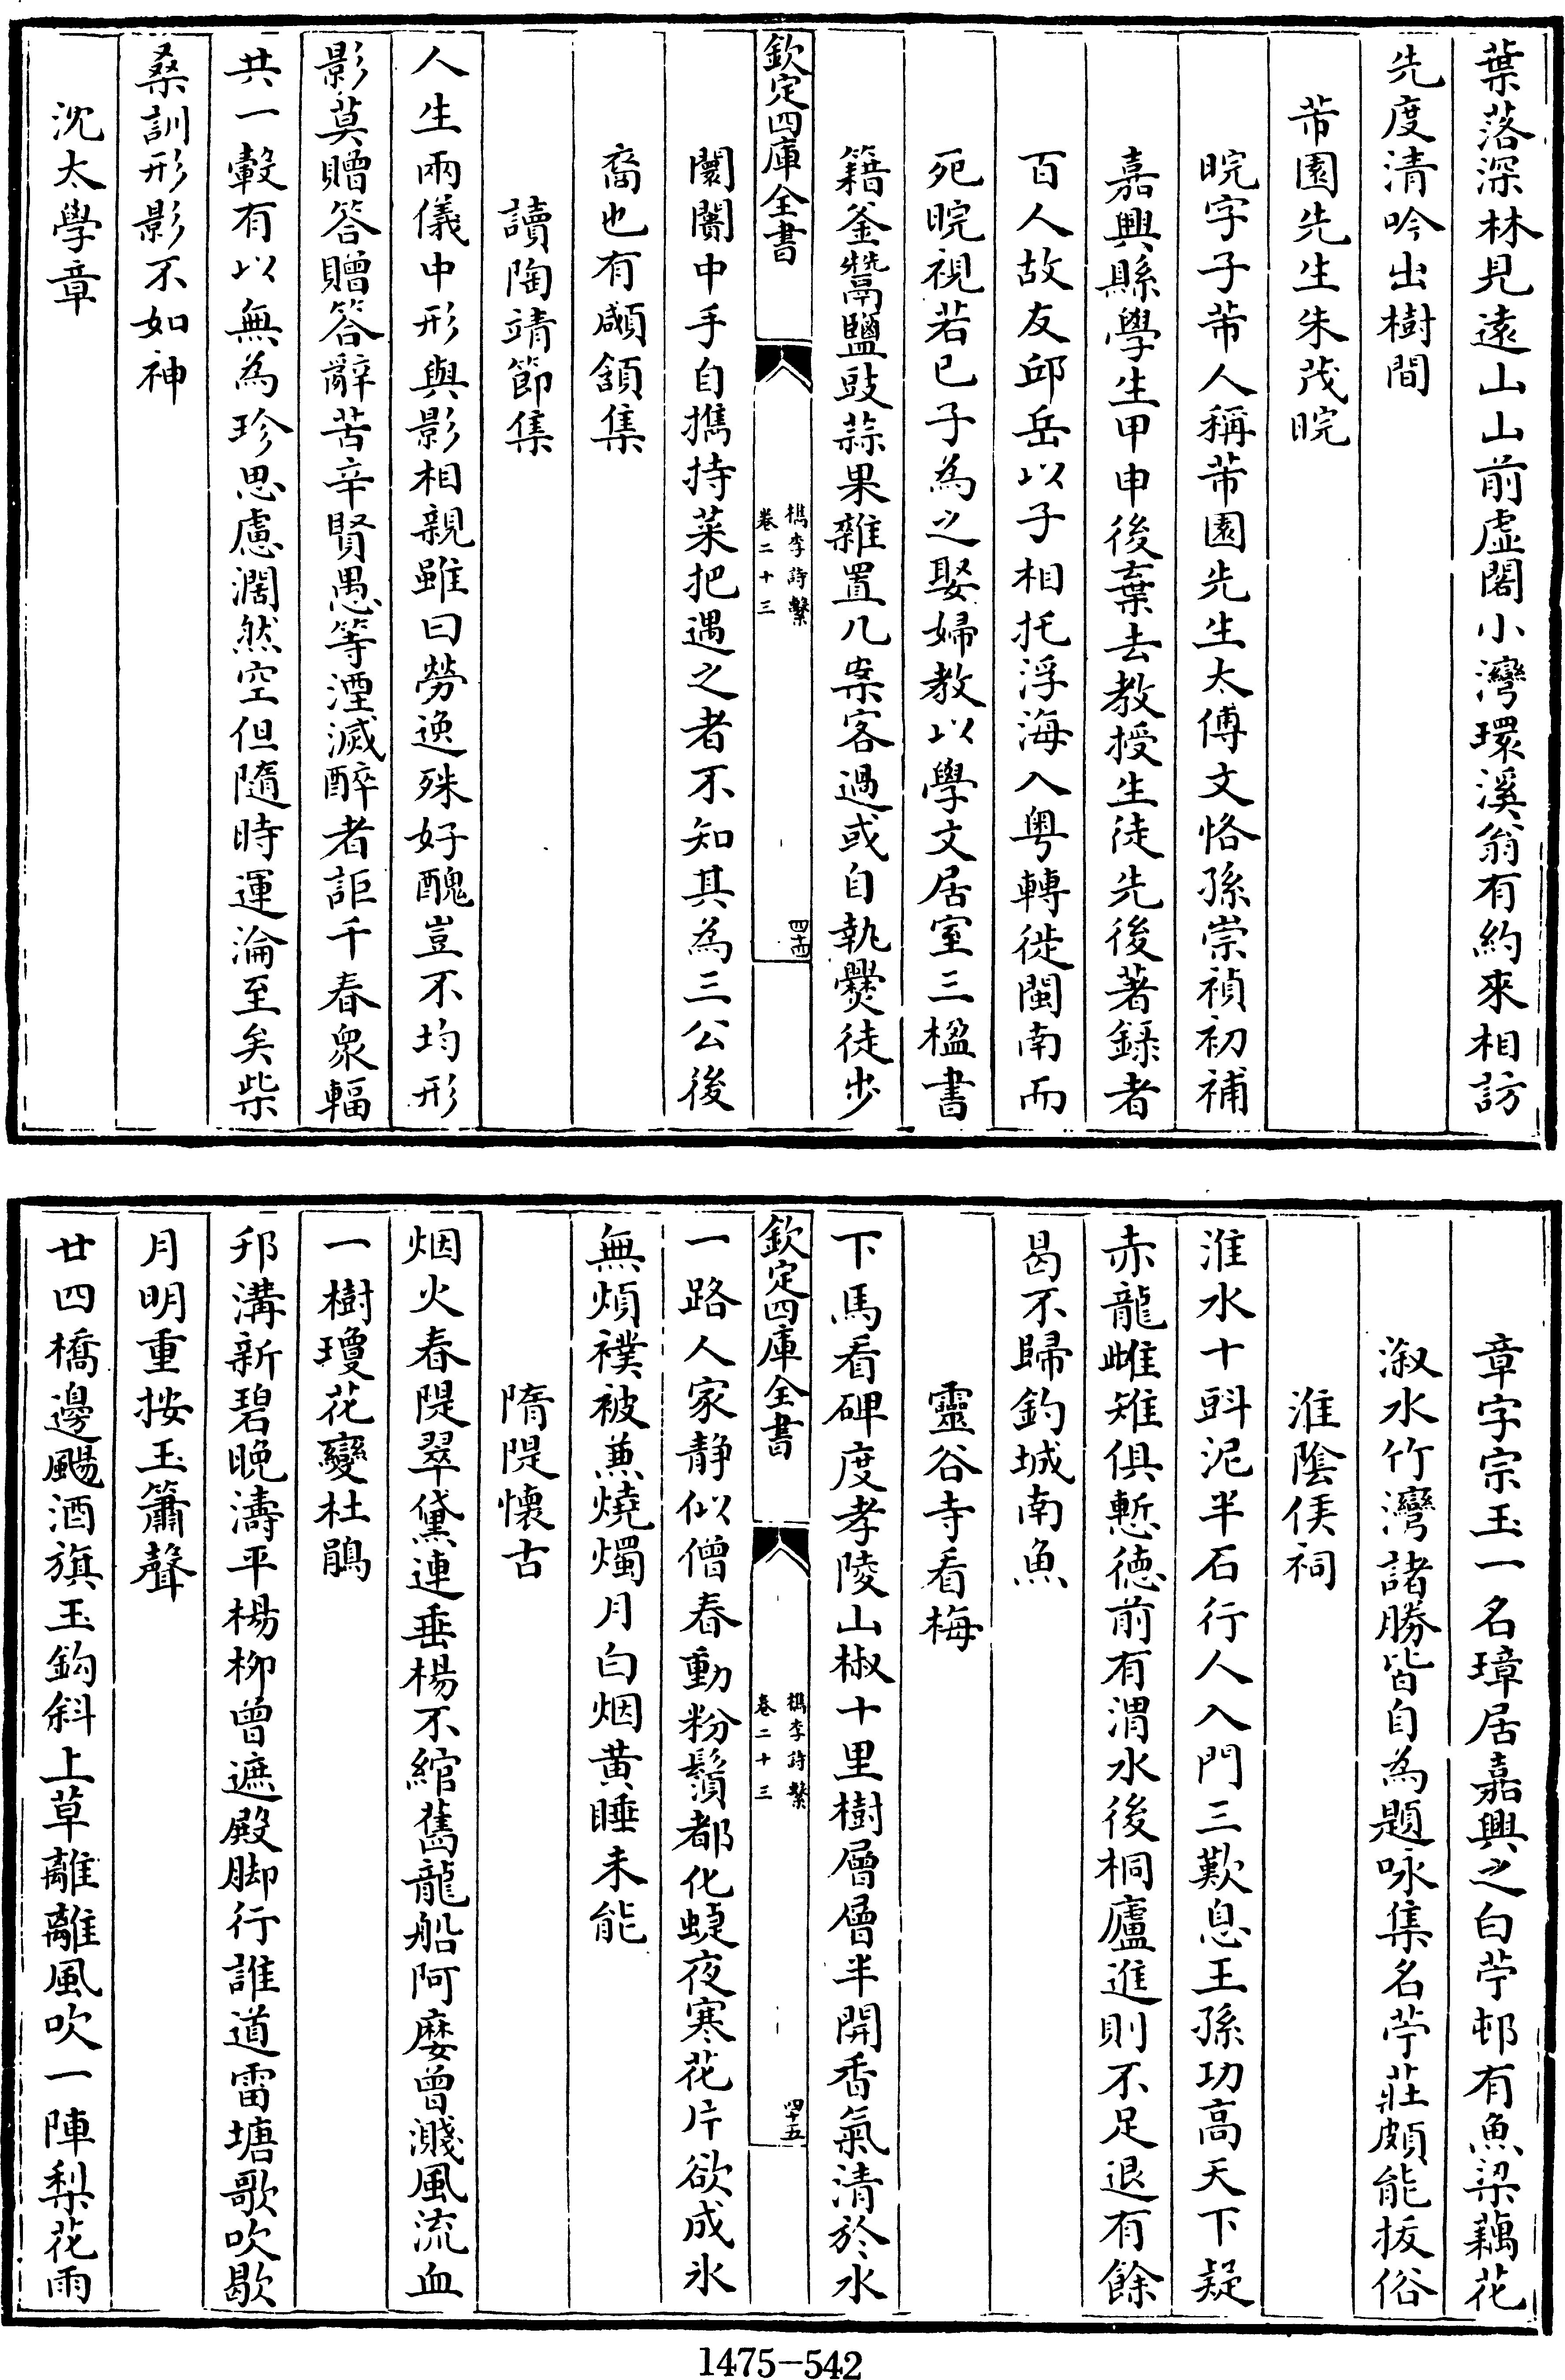 葉落深林見遠山山前虛閣小灣環溪翁有約來相訪
先度清吟出樹間
芾園先生朱茂晥
晥字子芾人稱芾園先生太傅文恪孫崇禎初補
嘉興縣學生甲申後棄去教授生徒先後著錄者
百人故友邱岳以子相托浮海入粵轉徙閩南而
死晥視若已子為之娶婦教以學文居室三楹書
籍釜鬵鹽豉蒜果雜置几案客過或自執爨徒步
闤闠中手自攜持菜把遇之者不知其為三公後
裔也有顑頷集
讀陶靖節集
人生兩儀中形與影相親雖曰勞逸殊好醜豈不均形
影莫贈答贈答辭苦辛賢愚等湮滅醉者詎千春衆輻
共一轂有以無為珍思慮濶然空但隨時運淪至矣柴
桑訓形影不如神
沈太學章
欽定四庫全書
檇李詩繫
卷二十三
四十四
章字宗玉一名璋居嘉興之白苧邨有魚梁藕花
漵水竹灣諸勝皆自為題咏集名苧莊頗能拔俗
淮陰侯祠
淮水十㪷泥半石行人入門三歎息王孫功高天下疑
赤龍雌雉俱慙德前有渭水後桐廬進則不足退有餘
曷不歸釣城南魚
靈谷寺看梅
下馬看碑度孝陵山椒十里樹層層半開香氣清於水
一路人家静似僧春動粉鬚都化蜨夜寒花片欲成氷
無煩襆被兼燒燭月白烟黄睡未能
隋隄懷古
烟火春隄翠黛連垂楊不綰舊龍船阿㜷曾濺風流血
一樹瓊花變杜鵑
邗溝新碧晚濤平楊柳曾遮殿脚行誰道雷塘歌吹歇
月明重按玉簫聲
廿四橋邊颺酒旗玉鈎斜上草離離風吹一陣梨花雨
欽定四庫全書
檇李詩繫
卷二十三
四十五
1475-542